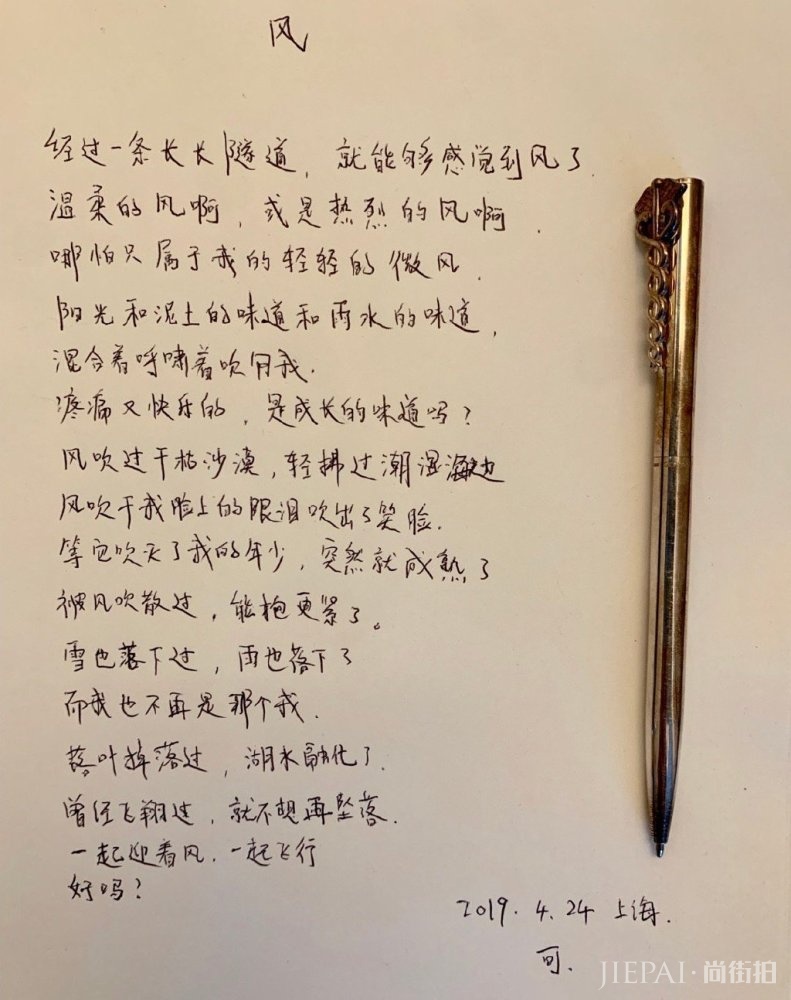 风
经过一条长长隧道，就能够感觉到风了.
温柔的风啊，或是热烈的风啊.
哪怕只属于我的轻轻的微风.
阳光和泥土的味道和雨水的味道，
混合着呼啸着吹向我.
疼痛又快乐的，是成长的味道吗？
风吹过干枯沙漠，轻拂过潮湿海边
风吹干我脸上的眼泪吹出了笑脸.
等它吹灭了我的年少，突然就成熟了
被风吹散过，能抱更紧了。
雪也落下过，雨也落下了
而我也不再是那个我.
落叶掉落过，湖水融化了.
曾经飞翔过，就不想再坠落.
一起迎着风.一起飞行
好吗？
2019.4.24 上海.
可.
JIEPAI·尚街拍